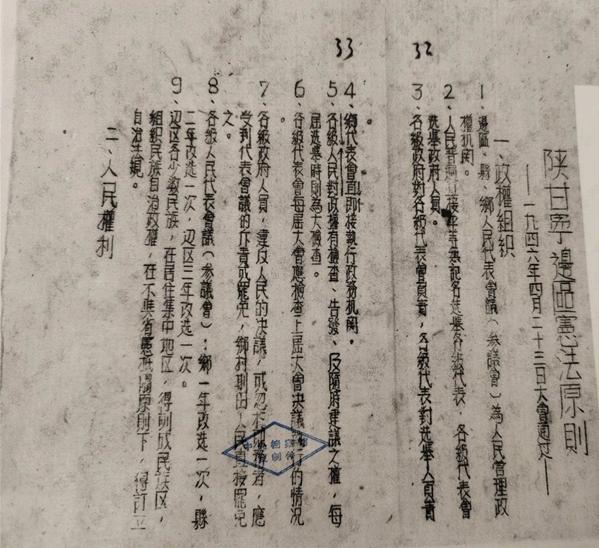 33
32
陕甘寧邊區憲法原則
——一九四六年四月二十三日大會通过——
一、政權组织
1、邊區、縣、鄉人民代表會議（参議會）為人民管理政
權机関。
2、人民普遍直接平等無記名选舉各級代表，各級代表會
选舉政府人員。
3、各級政府对各級代表會負責，各級代表对选舉人負責
。
4、鄉代表會直即接執行政務机関。
5、各級人民对政權有檢查、告發、及随時建議之權，每
屆选舉時則為大檢查。
6、各級代表會每屆大會應檢查上屆大會决議执行的情况
。
7、各級政府人員，違反人民的决議，或忽於職務者，應
受到代表會議的斥責或罢免，鄉村則由人民直接罢免
之。
8、各級人民代表會議（参議會）：鄉一年改选一次，縣
二年改选一次，辺区三年改选一次。
9、辺区各少数民族，在居住集中地区，得劃成民族区，
組织民族自治政權，在不與省憲抵觸原則下，得訂立
自治法規。
二、人民權利